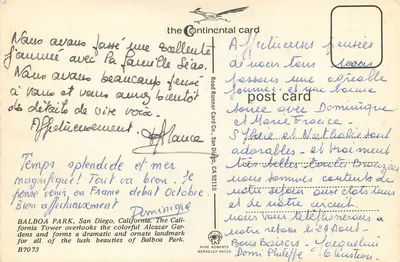 the Continental card
Nous avons passé une excellente
journée avec la famille
Nous avons beaucoup pensé
à vous et vous aurez bientôt
des détails de vive voix.
Affectueusement.
Temps splendide et mer
magnifique! Tout va bien. Je
pense venir en France début Octobre.
Bien affectueusement
Dominique
BALBOA PARK, San Diego, California. The Cali-
fornia Tower overlooks the colorful Alcazar Gar-
dens and forms a dramatic and ornate landmark
for all of the lush beauties of Balboa Park.
B7073
Road Runner Card Co., San Diego, CA 92110
MIKE ROBERTS
BERKELEY
post card
Affectueuses pensées
à vous tous
passons une agréable
journée et une bonne
soirée avec Dominique
et Marie France
Sylvie et Nathalie sont
adorables - et vraiment
très belles toutes
nous sommes contents de
notre séjour aux états unis
et de notre circuit.
nous vous téléphonerons à
notre
Bons Baisers - Jacqueline
Domi Philippe Christian